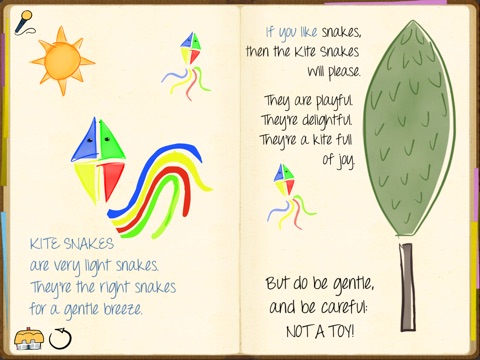 KITE SNAKES
are very light snakes.
They're the right snakes
for a gentle breeze.
If you like snakes,
then the Kite Snakes
will please.
They are playful.
They're delightful.
They're a kite full
of joy.
But do be gentle,
and be careful:
NOT A TOY!